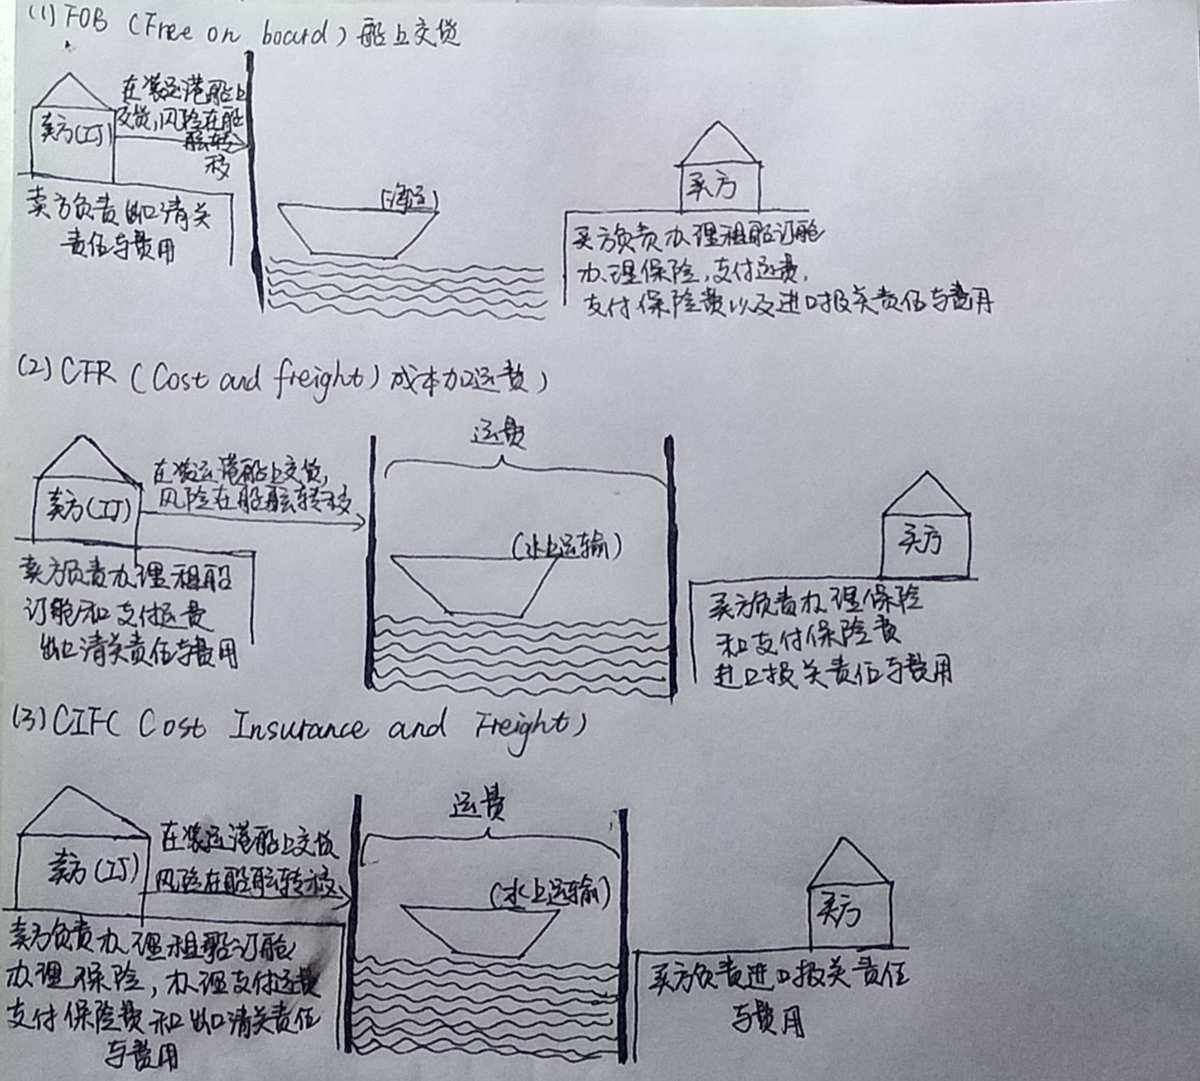 (1) FOB (Free on board) 船上交货
在装运港船上
交货,风险在船
舷转
移
卖方(工厂)
(海运)
买方
卖方负责出口清关
责任与费用
买方负责办理租船订舱
办理保险,支付运费,
支付保险费以及进口报关责任与费用
(2) CFR (Cost and freight) 成本加运费)
运费
在装运港船上交货,
风险在船舷转移
卖方(工厂)
(水上运输)
买方
卖方负责办理租船
订舱和支付运费
出口清关责任与费用
买方负责办理保险
和支付保险费
进口报关责任与费用
(3) CIF( Cost Insurance and Freight)
运费
在装运港船上交货
风险在船舷转移
卖方(工厂)
(水上运输)
买方
卖方负责办理租船订舱
办理保险,办理支付运费
支付保险费和出口清关责任
与费用
买方负责进口报关责任
与费用